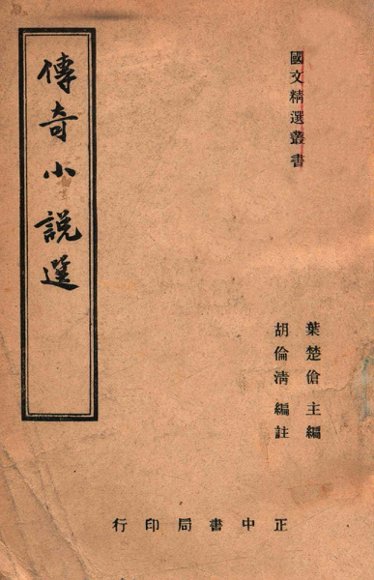 國文精選叢書
傳奇小説選
葉楚傖主編
胡倫清編註
正中書局印行